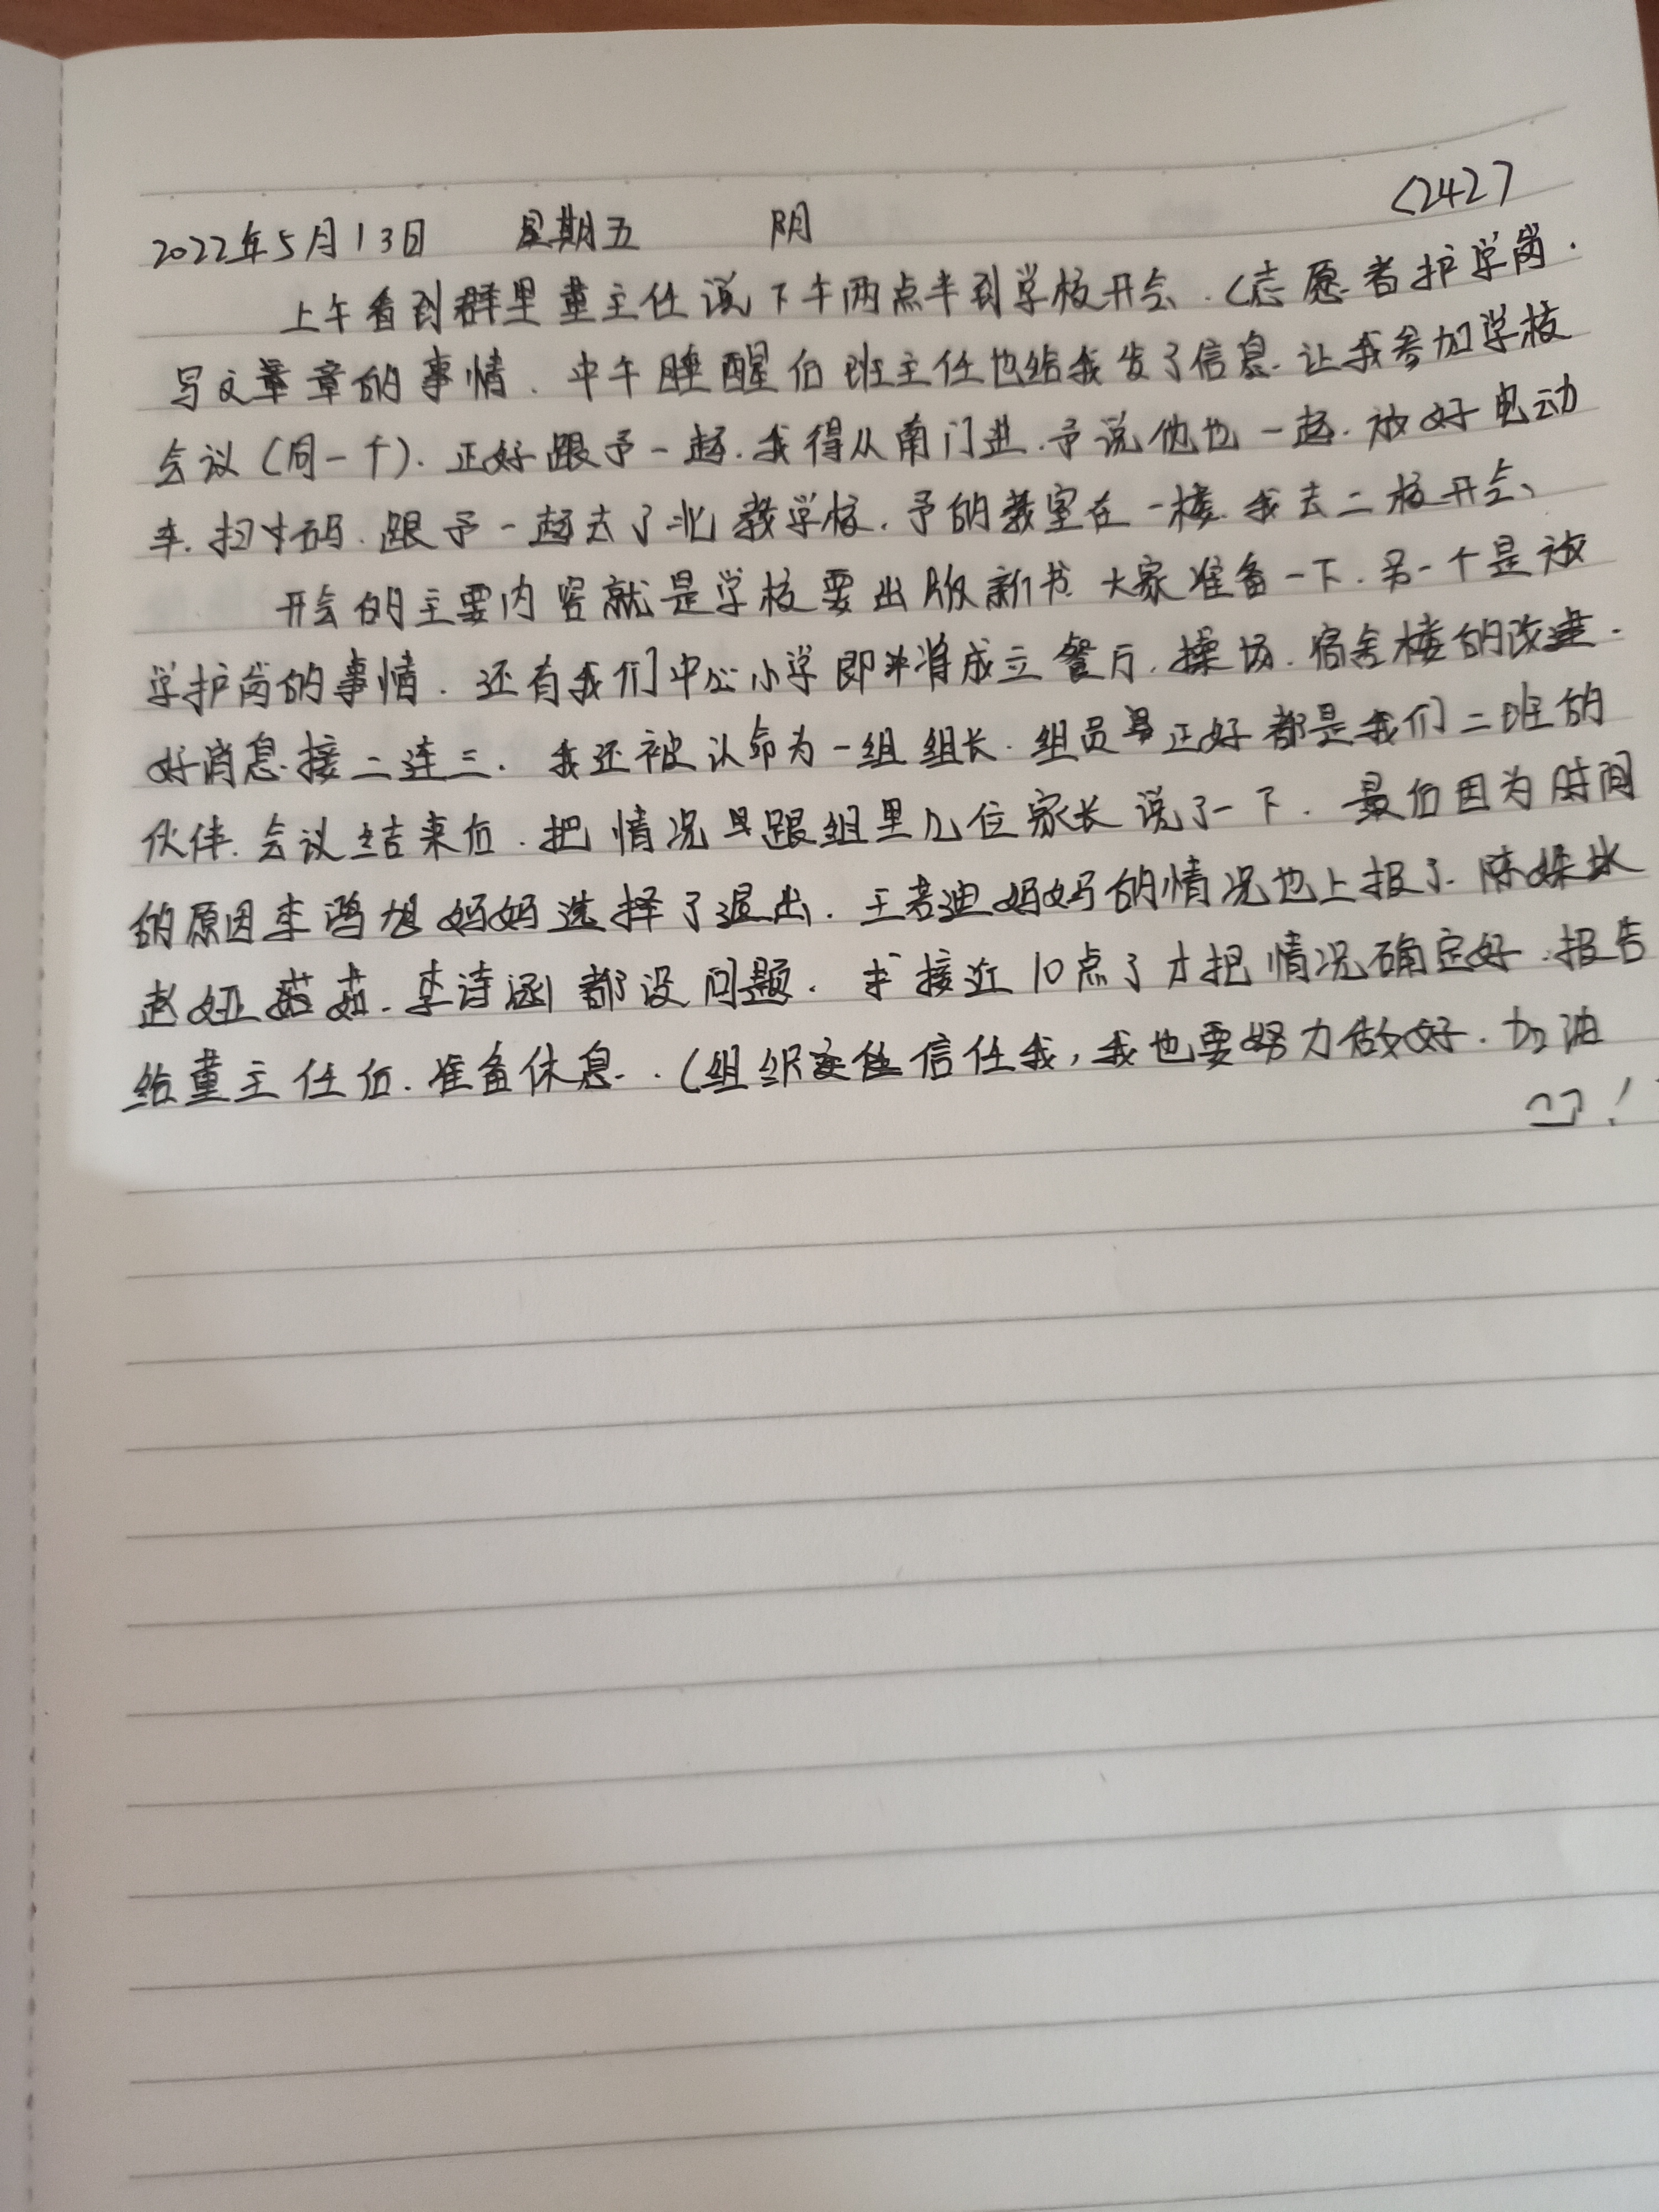 2022年5月13日 星期五 阴 <242>
上午看到群里董主任说下午两点半到学校开会.(志愿者护学岗.
写文章的事情.中午睡醒后班主任也给我发了信息.让我参加学校
会议(同一个).正好跟予一起.我得从南门进.予说他也一起.放好电动
车.扫码.跟予一起去了北教学楼.予的教室在一楼.我去二楼开会、
开会的主要内容就是学校要出版新书 大家准备一下.另一个是放
学护岗的事情.还有我们中心小学即将成立餐厅.操场.宿舍楼的改建.
好消息接二连三.我还被认命为一组组长.组员正好都是我们二班的
伙伴.会议结束后.把情况跟组里几位家长说了一下.最后因为时间
的原因李鸿旭妈妈选择了退出.王若迪妈妈的情况也上报了.陈姝
赵娅茹.李诗涵都没问题.接近10点了才把情况确定好.报告
给董主任后.准备休息.(组织信任我,我也要努力做好.加油
!